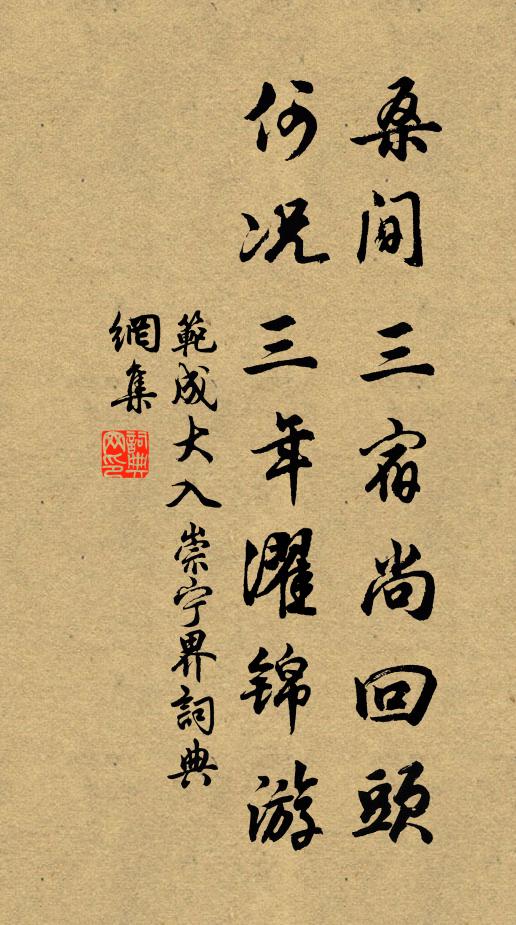 桑間三宿尚回頭
何况三年濯锦游
範成大入崇宁界詞典
網集
詞典
网印